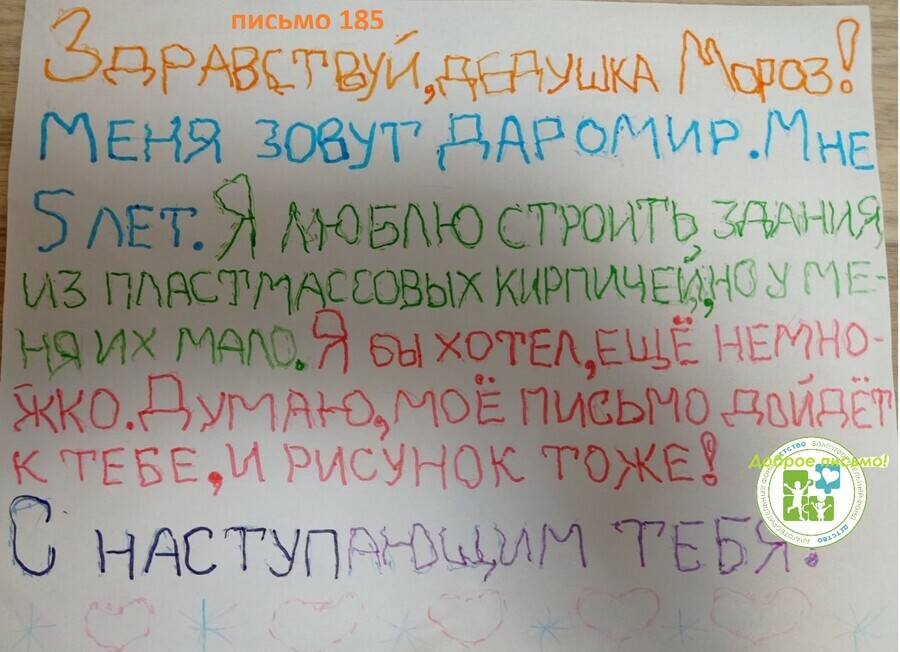 письмо 185
Здравствуй, дедушка Мороз!
Меня зовут Даромир. Мне
5 лет. Я люблю строить, здания,
из пластмассовых кирпичей, но у ме-
ня их мало. Я бы хотел, ещё немно-
жко. Думаю, моё письмо дойдёт
к тебе, и рисунок тоже!
Доброе письмо!
БЛАГОТВОРИТЕЛЬНЫЙ ФОНД ДЕТСТВО
С наступающим тебя.